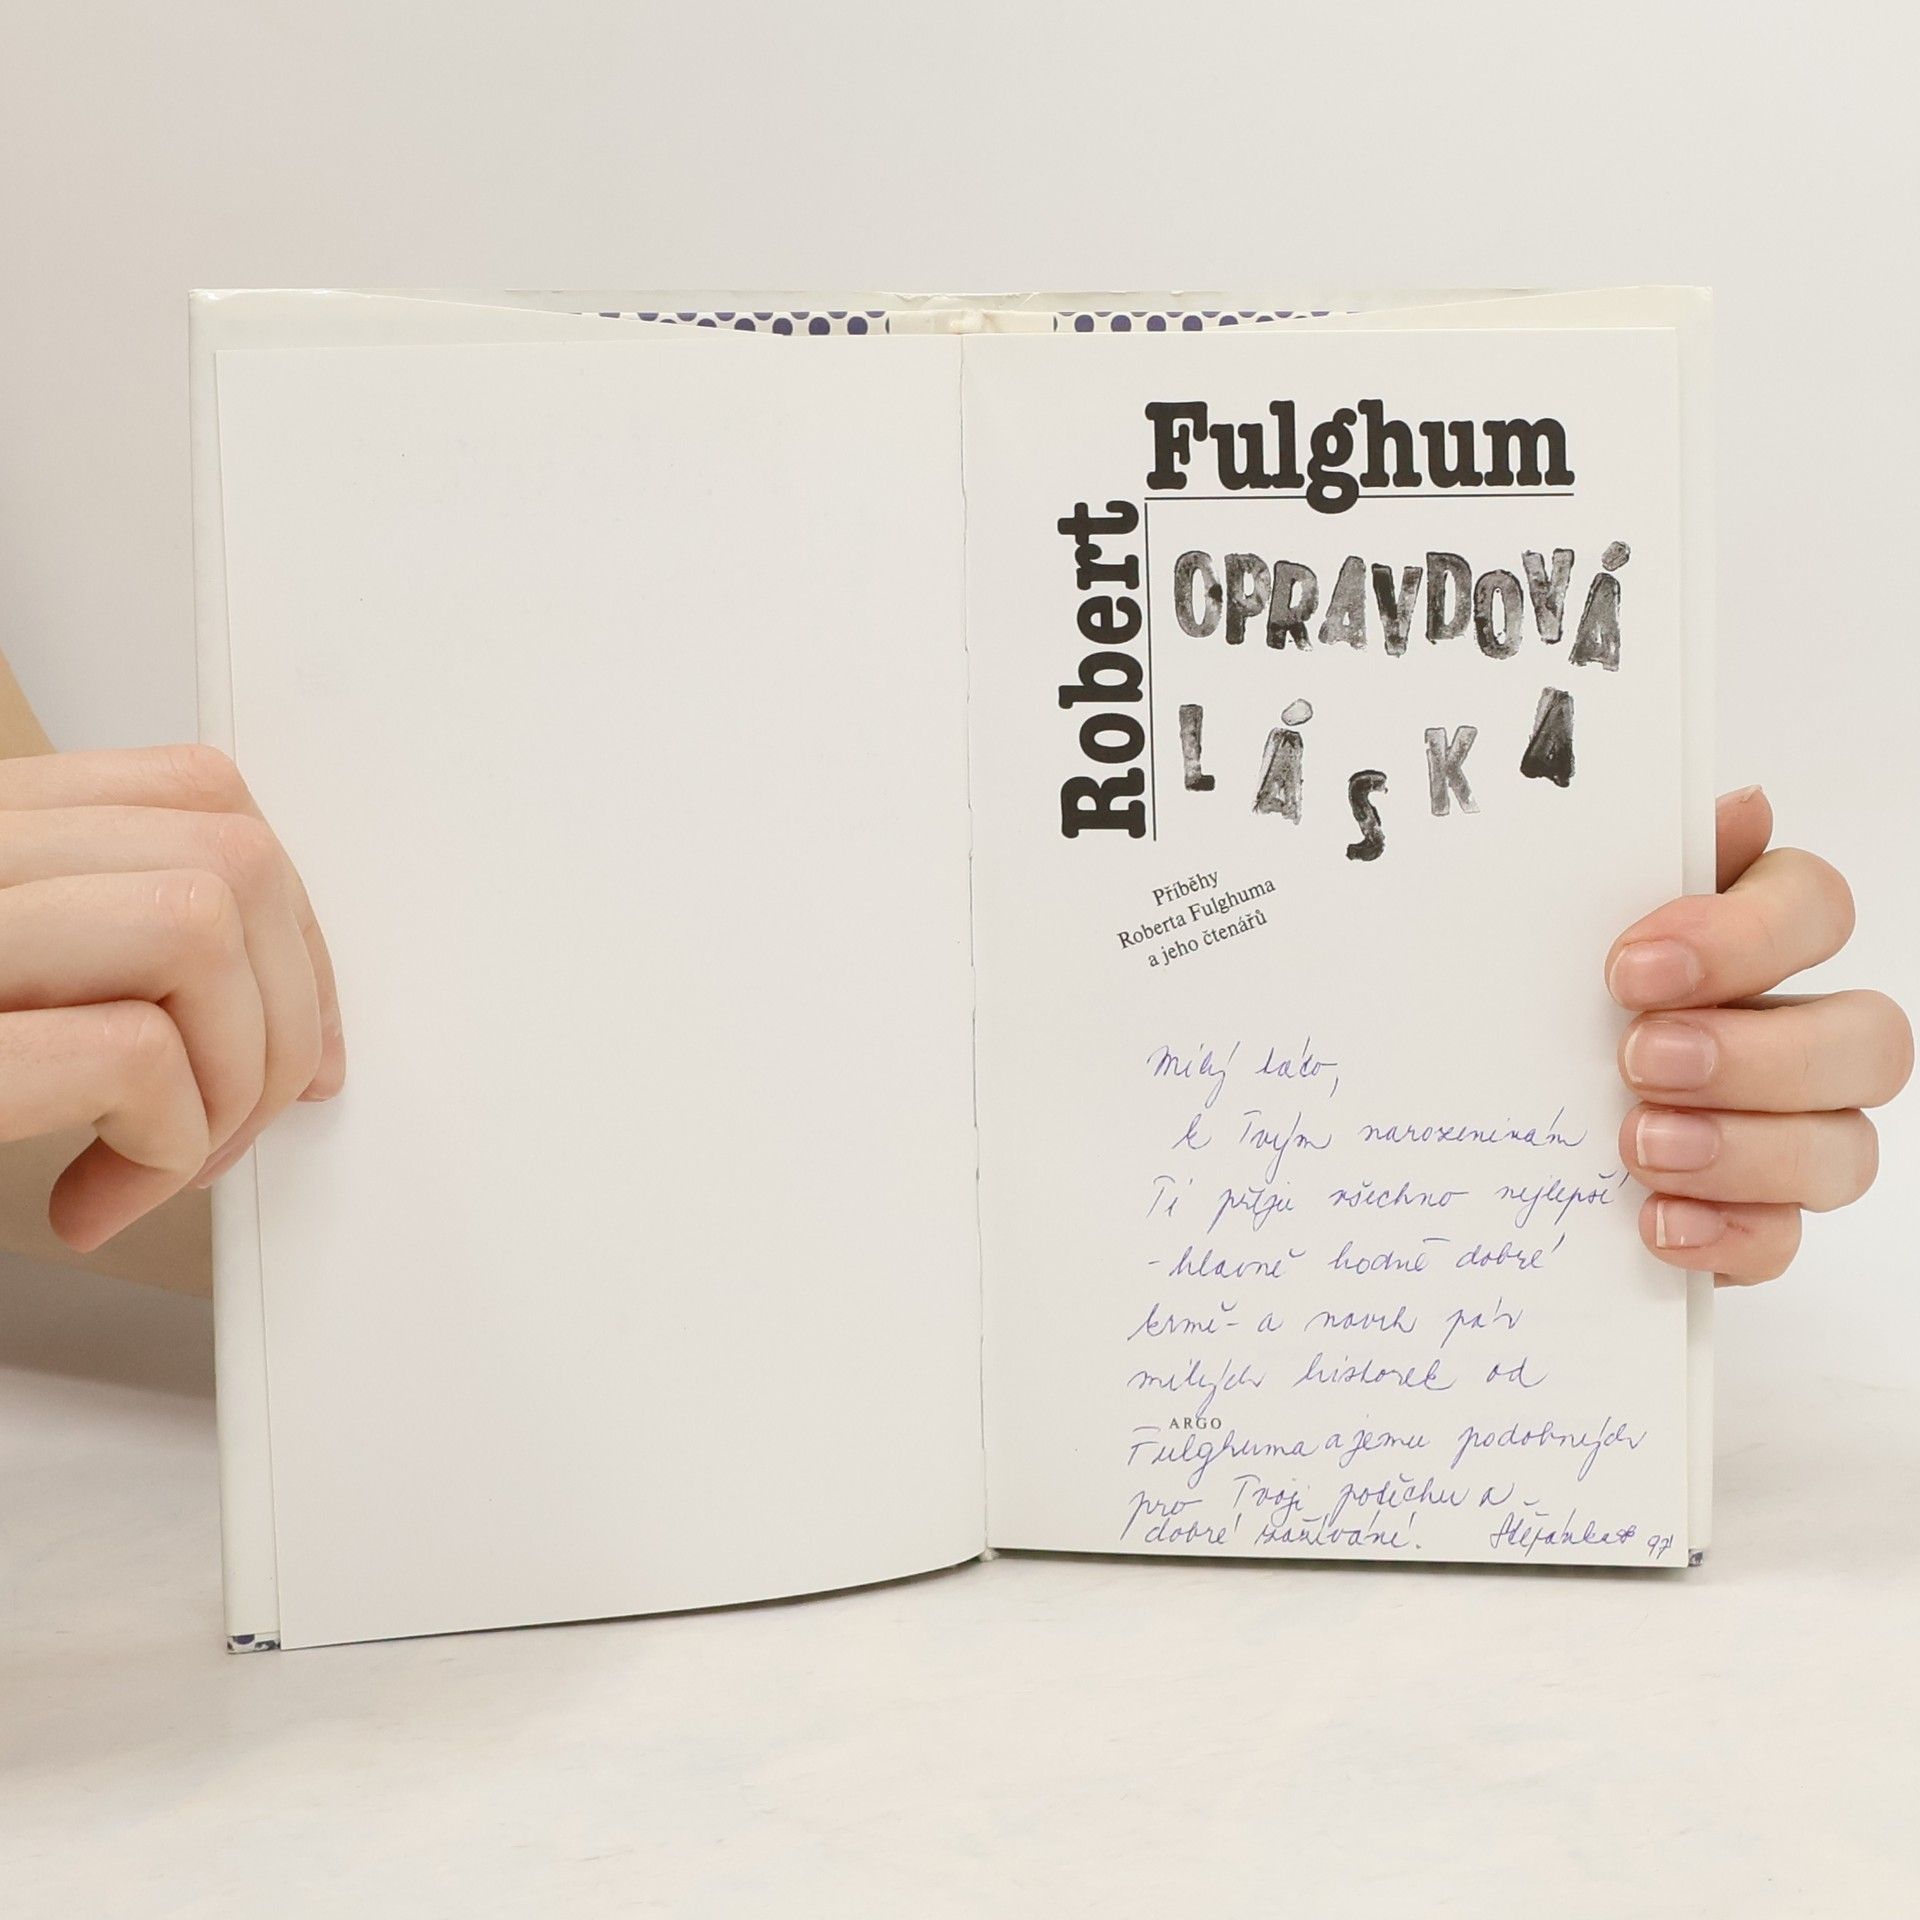 Robert
Fulghum
OPRAVDOVÁ
LÁSKA
Příběhy
Roberta Fulghuma
a jeho čtenářů
Milý táto,
k Tvým narozeninám
Ti přeju všechno nejlepší
- hlavně hodně dobré
krmě - a navrh pár
milých historek od
ARGO
Fulghuma a jemu podobných
pro Tvoji potěchu a
dobré zažívání. Štěpánka 97